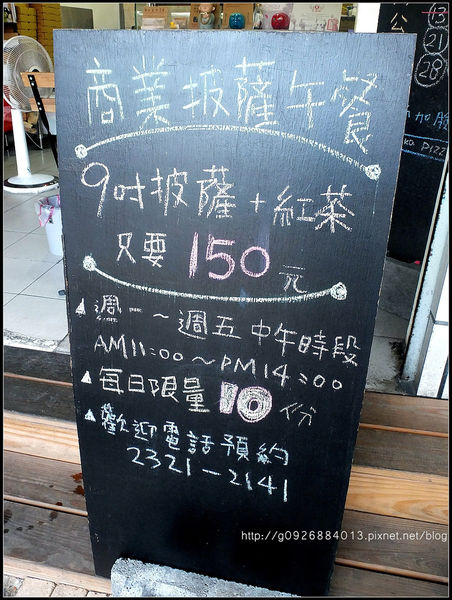 商業披薩午餐
9吋披薩+紅茶
只要150元
▲週一～週五中午時段
AM11:00～PM14:00
▲每日限量10份
▲歡迎電話預約
2321-2141
13
21
28
PIZZ
http://g0926884013.pixnet.net/blog